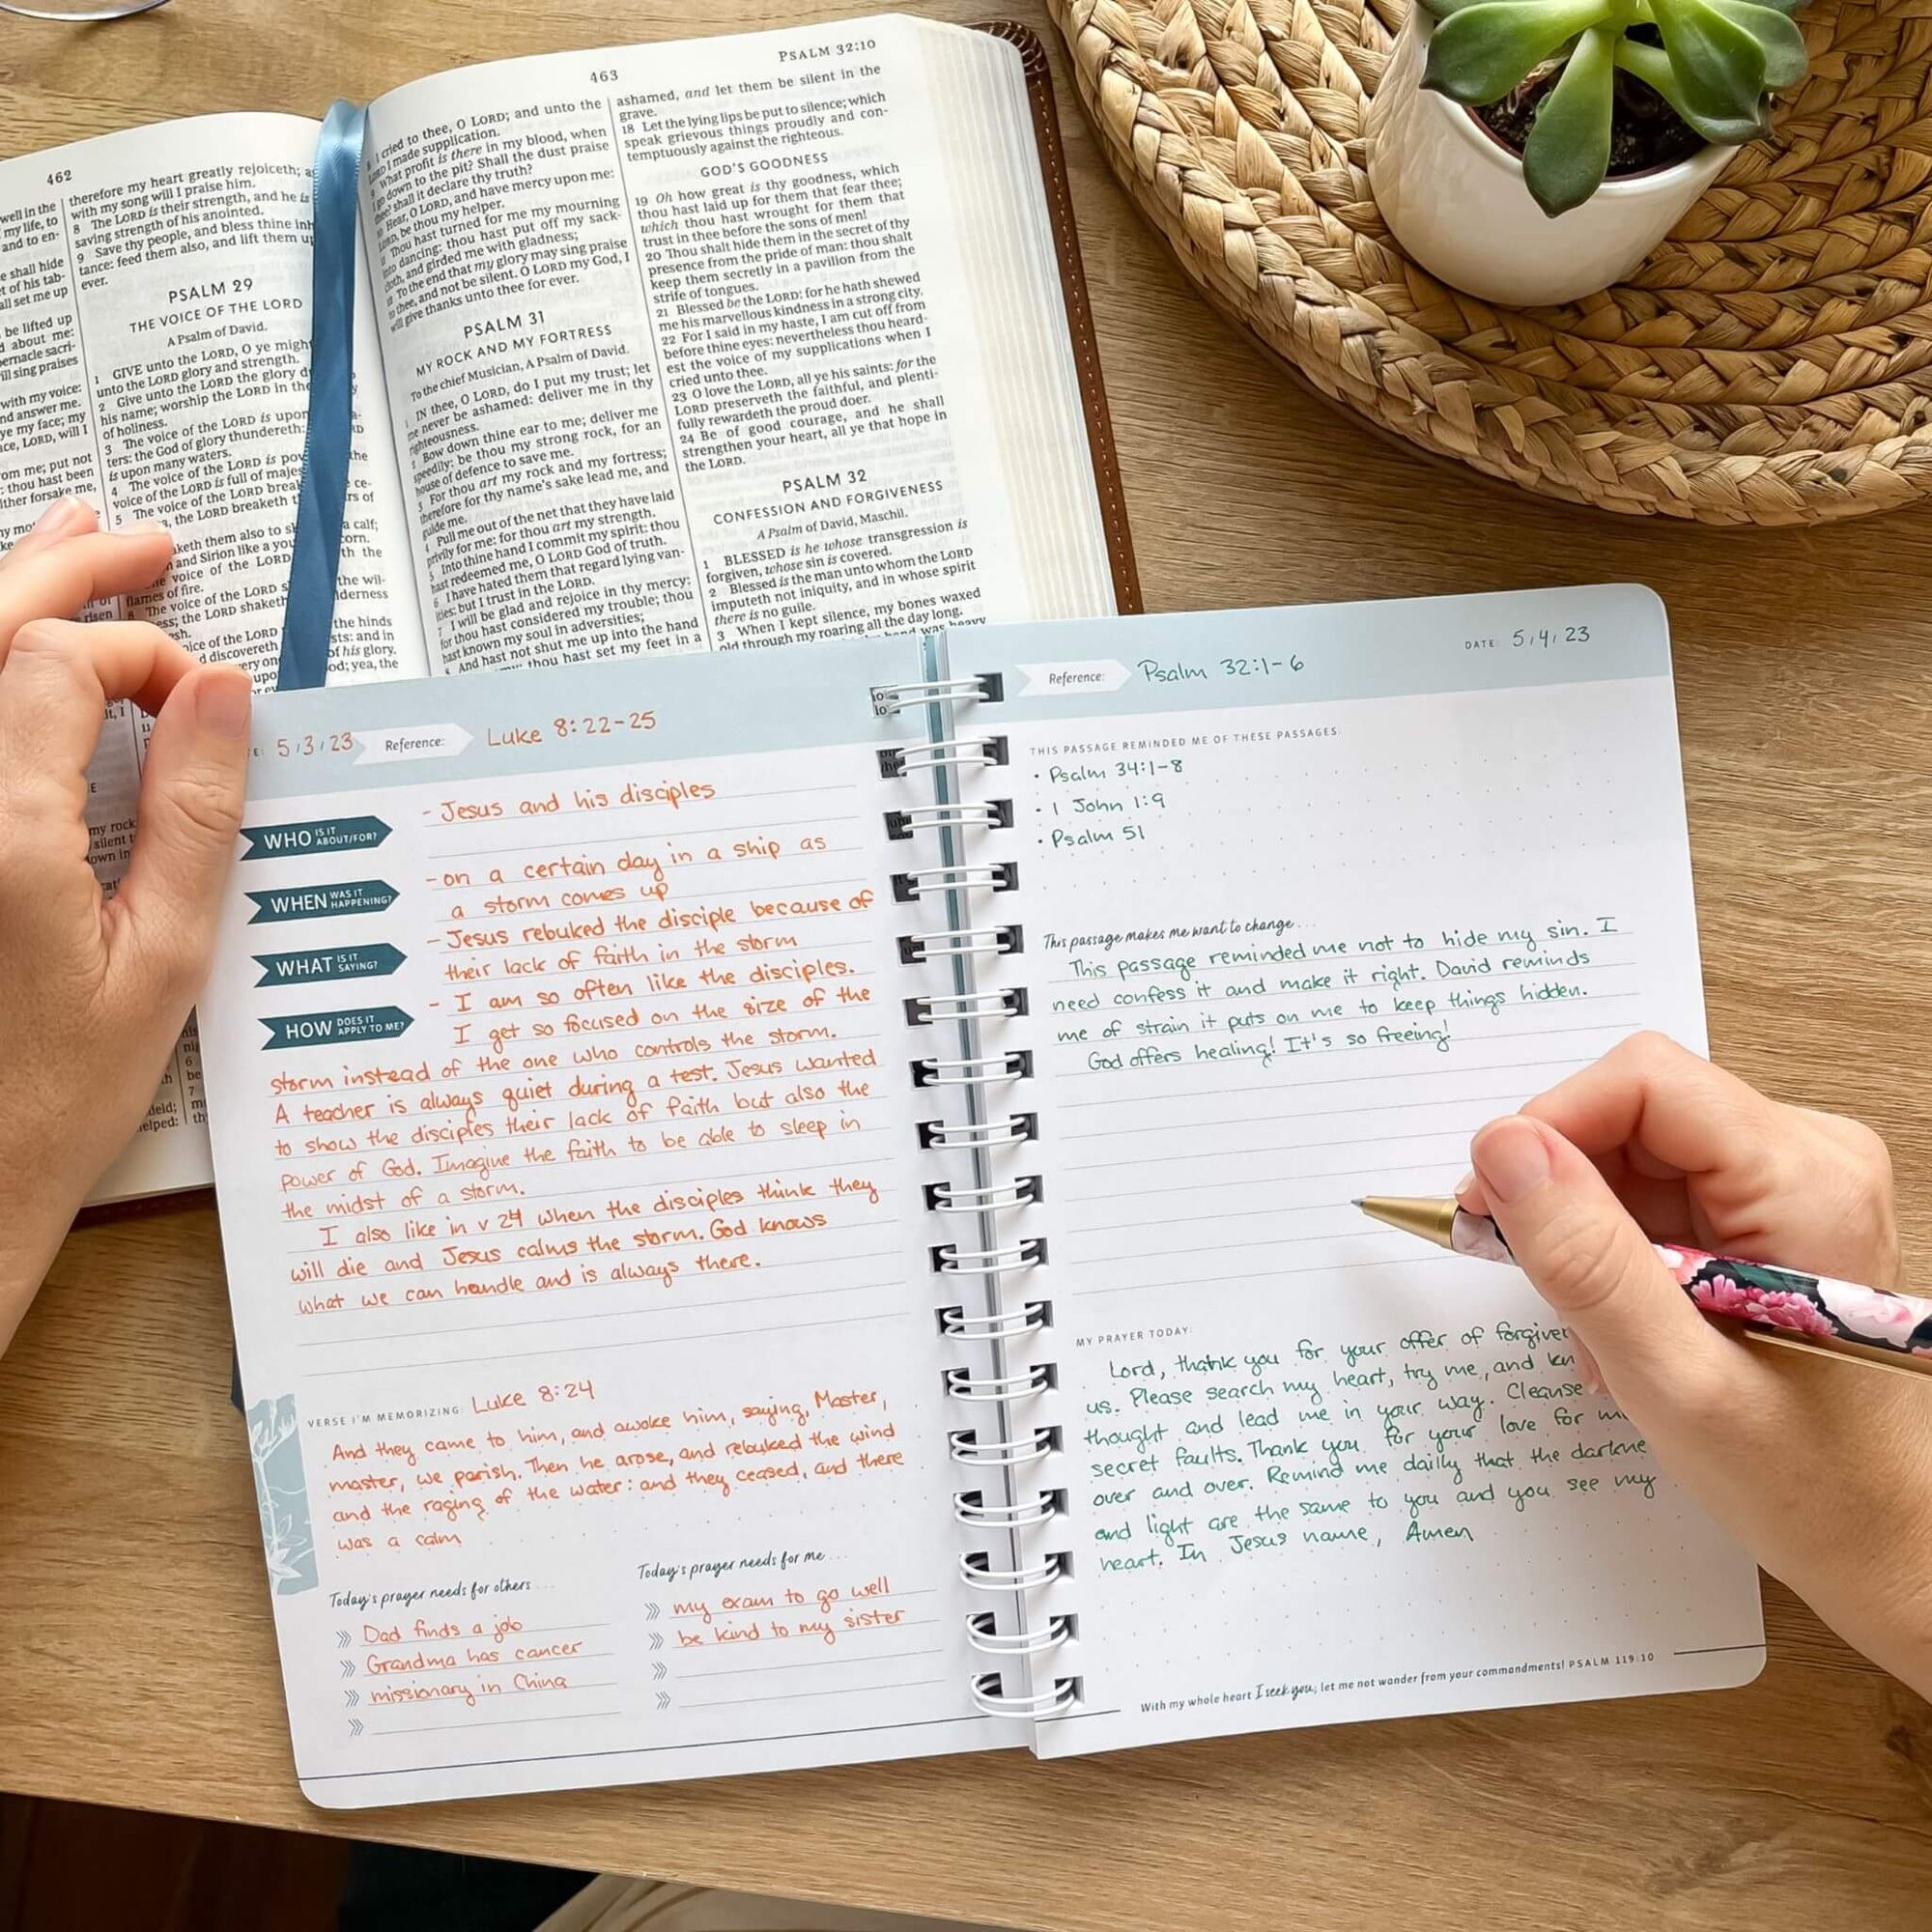 462
well in the
my life, to
and to en-
e shall hide
t of his tab-
all set me up
be lifted up
d about me:
ernacle sacri-
ill sing praises
with my voice:
nd answer me.
ye my face; my
ace, LORD, will I
om me; put not
: thou hast been
ither forsake me,
therefore my heart greatly rejoiceth;
with my song will I praise him.
8 The LORD is their strength, and he is
saving strength of his anointed.
9 Save thy people, and bless thine inh
tance: feed them also, and lift them u
ever.
PSALM 29
THE VOICE OF THE LORD
A Psalm of David.
1 GIVE unto the LORD, O ye migh
unto the LORD glory and strength.
2 Give unto the LORD the glory d
his name; worship the LORD in the
of holiness.
3 The voice of the LORD is upon
ters: the God of glory thundereth:
is upon many waters.
4 The voice of the LORD is pow
voice of the LORD is full of majes
5 The voice of the LORD break
the LORD breaketh t
aketh them also to sk
and Sirion like a you
voice of the LORD
flames of fire.
8 The voice of the LORD s
ess; the LORD shaketh
oice of the LORD
d discovereth
463
PSALM 32:10
I cried to thee, O LORD; and unto the
LORD I made supplication.
9 What profit is there in my blood, when
I go down to the pit? Shall the dust praise
thee? shall it declare thy truth?
Hear, O LORD, and have mercy upon me:
LORD, be thou my helper.
Thou hast turned for me my mourning
into dancing: thou hast put off my sack-
cloth, and girded me with gladness;
To the end that my glory may sing praise
to thee, and not be silent. O LORD my God, I
will give thanks unto thee for ever.
PSALM 31
MY ROCK AND MY FORTRESS
To the chief Musician, A Psalm of David.
IN thee, O LORD, do I put my trust; let
me never be ashamed: deliver me in thy
righteousness.
Bow down thine ear to me; deliver me
speedily: be thou my strong rock, for an
house of defence to save me.
3 For thou art my rock and my fortress;
therefore for thy name's sake lead me, and
guide me.
4 Pull me out of the net that they have laid
privily for me: for thou art my strength.
5 Into thine hand I commit my spirit: thou
hast redeemed me, O LORD God of truth.
6 I have hated them that regard lying van-
ities: but I trust in the LORD.
7 I will be glad and rejoice in thy mercy:
for thou hast considered my trouble; thou
hast known my soul in adversities;
And hast not shut me up into the hand
thou hast set my feet in a
ashamed, and let them be silent in the
grave.
18 Let the lying lips be put to silence; which
speak grievous things proudly and con-
temptuously against the righteous.
GOD'S GOODNESS
19 Oh how great is thy goodness, which
thou hast laid up for them that fear thee;
which thou hast wrought for them that
trust in thee before the sons of men!
20 Thou shalt hide them in the secret of thy
presence from the pride of man: thou shalt
keep them secretly in a pavilion from the
strife of tongues.
21 Blessed be the LORD: for he hath shewed
me his marvellous kindness in a strong city.
22 For I said in my haste, I am cut off from
before thine eyes: nevertheless thou heard-
est the voice of my supplications when I
cried unto thee.
23 O love the LORD, all ye his saints: for the
LORD preserveth the faithful, and plenti-
fully rewardeth the proud doer.
24 Be of good courage, and he shall
strengthen your heart, all ye that hope in
the LORD.
PSALM 32
CONFESSION AND FORGIVENESS
A Psalm of David, Maschil.
1 BLESSED is he whose transgression is
forgiven, whose sin is covered.
2 Blessed is the man unto whom the LORD
imputeth not iniquity, and in whose spirit
there is no guile.
3 When I kept silence, my bones waxed
old through my roaring all the day long.
hand was heavy
E: 5/3/23 Reference: Luke 8:22-25
WHO IS IT ABOUT/FOR?
- Jesus and his disciples
WHEN WAS IT HAPPENING?
- on a certain day in a ship as
a storm comes up
WHAT IS IT SAYING?
- Jesus rebuked the disciple because of
their lack of faith in the storm
HOW DOES IT APPLY TO ME?
- I am so often like the disciples.
I get so focused on the size of the
storm instead of the one who controls the storm.
A teacher is always quiet during a test. Jesus wanted
to show the disciples their lack of faith but also the
power of God. Imagine the faith to be able to sleep in
the midst of a storm.
I also like in v 24 when the disciples think they
will die and Jesus calms the storm. God knows
what we can handle and is always there.
VERSE I'M MEMORIZING: Luke 8:24
And they came to him, and awoke him, saying, Master,
master, we parish. Then he arose, and rebuked the wind
and the raging of the water: and they ceased, and there
was a calm
Today's prayer needs for others ...
Dad finds a job
Grandma has cancer
missionary in China
Today's prayer needs for me ...
my exam to go well
be kind to my sister
Reference: Psalm 32:1-6
DATE: 5/4/23
THIS PASSAGE REMINDED ME OF THESE PASSAGES:
• Psalm 34:1-8
• 1 John 1:9
• Psalm 51
This passage makes me want to change ...
This passage reminded me not to hide my sin. I
need confess it and make it right. David reminds
me of strain it puts on me to keep things hidden.
God offers healing! It's so freeing!
MY PRAYER TODAY:
Lord, thank you for your offer of forgiven
us. Please search my heart, try me, and kn
thought and lead me in your way. Cleanse
secret faults. Thank you for your love for m
over and over. Remind me dailly that the darkne
and light are the same to you and you see my
heart. In Jesus name, Amen
With my whole heart I seek you; let me not wander from your commandments! PSALM 119:10